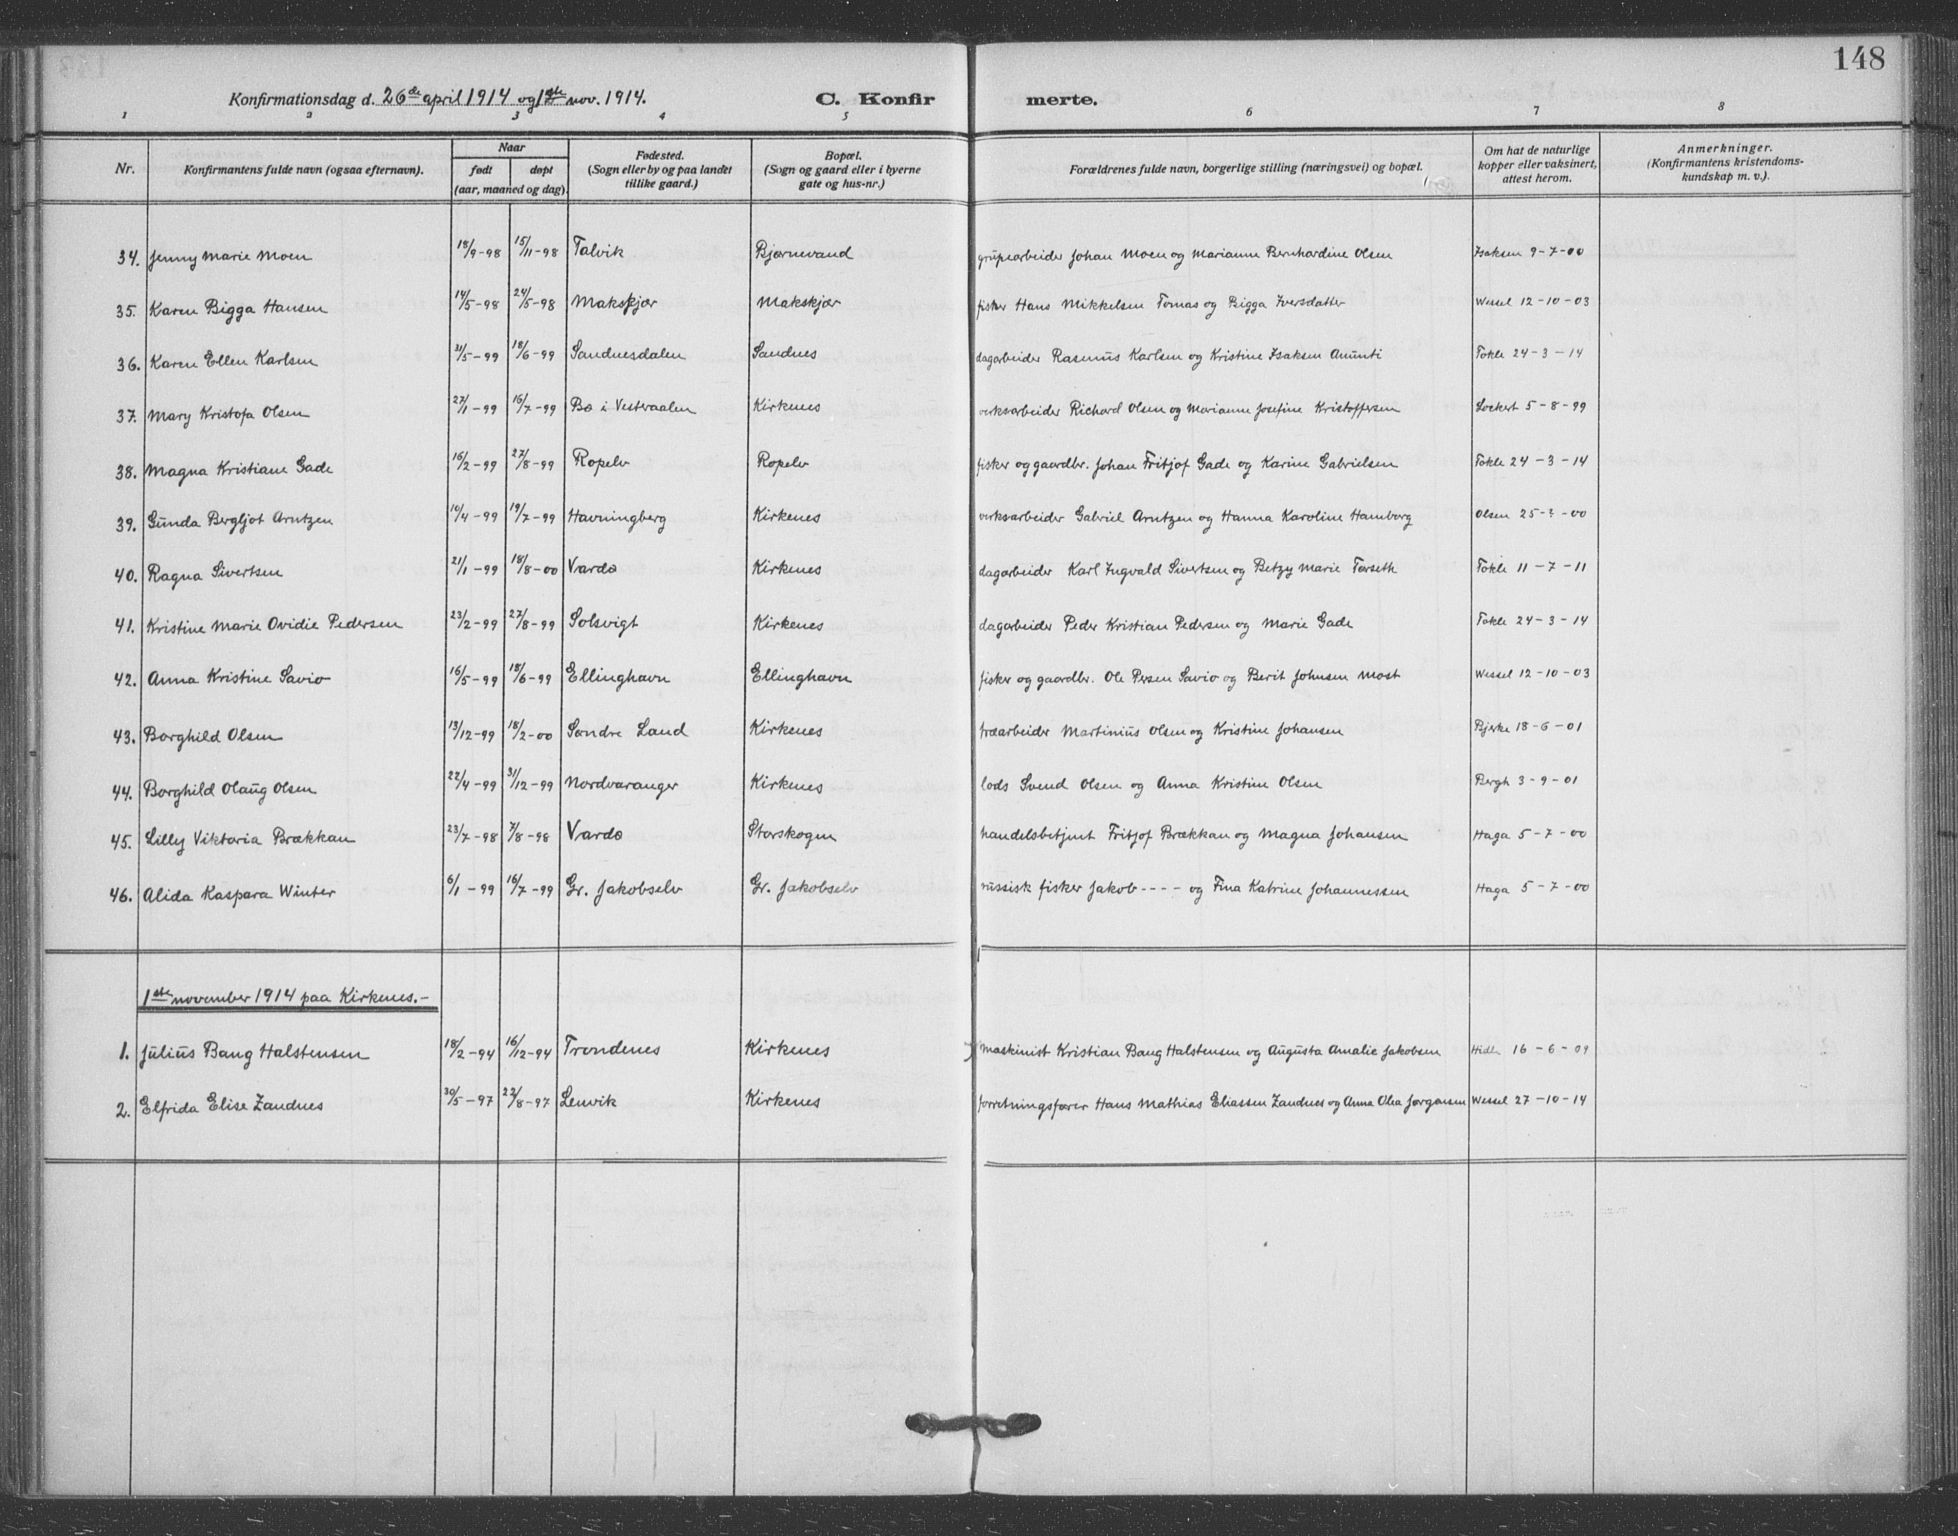 148
Konfirmationsdag d. 26de april 1914 og 1ste nov. 1914. C. Konfir merte.
1 2 3 4 5 6 7 8
Nr. Konfirmantens fulde navn (ogsaa efternavn). Naar født døpt (aar, maaned og dag). Fødested. (Sogn eller by og paa landet tillike gaard.) Bopæl. (Sogn og gaard eller i byerne gate og hus-nr.) Forældrenes fulde navn, borgerlige stilling (næringsvei) og bopæl. Om hat de naturlige kopper eller vaksinert, attest herom. Anmerkninger. (Konfirmantens kristendoms-kundskap m. v.).
34. Jenny Marie Moen 18/9-98 15/11-98 Talvik Bjørnevand grubearbeider Johan Moen og Marianne Bernhardine Olsen Isaksen 9-7-00
35. Karen Bigga Hansen 14/5-98 24/5-98 Makskjær Makskjær fisker Hans Mikkelsen Tomas og Bigga Iversdatter Wessel 12-10-03
36. Karen Ellen Karlsen 31/5-99 18/6-99 Sandnesdalen Sandnes dagarbeider Rasmus Karlsen og Kristine Isaksen Anunti Tokle 24-3-14
37. Mary Kristofa Olsen 27/1-99 16/7-99 Bø i Vesteraalen Kirkenes verksarbeider Richard Olsen og Marianne Josefine Kristoffersen Lockert 5-8-99
38. Magna Kristiane Gade 16/2-99 27/8-99 Ropelv Ropelv fisker og gaardbr. Johan Fritjof Gade og Karine Gabrielsen Tokle 24-3-14
39. Gunda Bergljot Arntzen 10/4-99 19/7-99 Havningberg Kirkenes verksarbeider Gabriel Arntzen og Hanna Karoline Hamborg Olsen 25-?-00
40. Ragna Sivertsen 21/1-99 18/8-00 Vardø Kirkenes dagarbeider Karl Ingvald Sivertsen og Betzy Marie Forseth Tokle 11-7-11
41. Kristine Marie Ovidie Pedersen 23/2-99 27/8-99 Solsvigt Kirkenes dagarbeider Peder Kristian Pedersen og Marie Gade Tokle 24-3-14
42. Anna Kristine Savio 16/5-99 18/6-99 Ellinghavn Ellinghavn fisker og gaardbr. Ole Persen Savio og Berit Johnsen Most Wessel 12-10-03
43. Borghild Olsen 13/12-99 18/2-00 Søndre Land Kirkenes træarbeider Martinius Olsen og Kristine Johansen Bjerke 18-6-01
44. Borghild Olaug Olsen 22/4-99 31/12-99 Nordvaranger Kirkenes lods Svend Olsen og Anna Kristine Olsen Bergh 3-9-01
45. Lilly Viktoria Brækkan 23/7-98 7/8-98 Vardø Storskogen handelsbetjent Fritjof Brækkan og Magna Johansen Haga 5-7-00
46. Alida Kaspara Winter 6/1-99 16/7-99 Gr. Jakobselv Gr. Jakobselv russisk fisker Jakob ---- og Fina Katrine Johannessen Haga 5-7-00
1ste november 1914 paa Kirkenes.-
1. Julius Bang Halstensen 18/2-94 16/12-94 Trondenes Kirkenes maskinist Kristian Bang Halstensen og Augusta Amalie Jakobsen 16-6-09
2. Elfrida Elise Zandnes 30/5-97 22/8-97 Lenvik Kirkenes forretningsfører Hans Mathias Eliassen Zandnes og Anna Olea Jørgensen Wessel 27-10-14